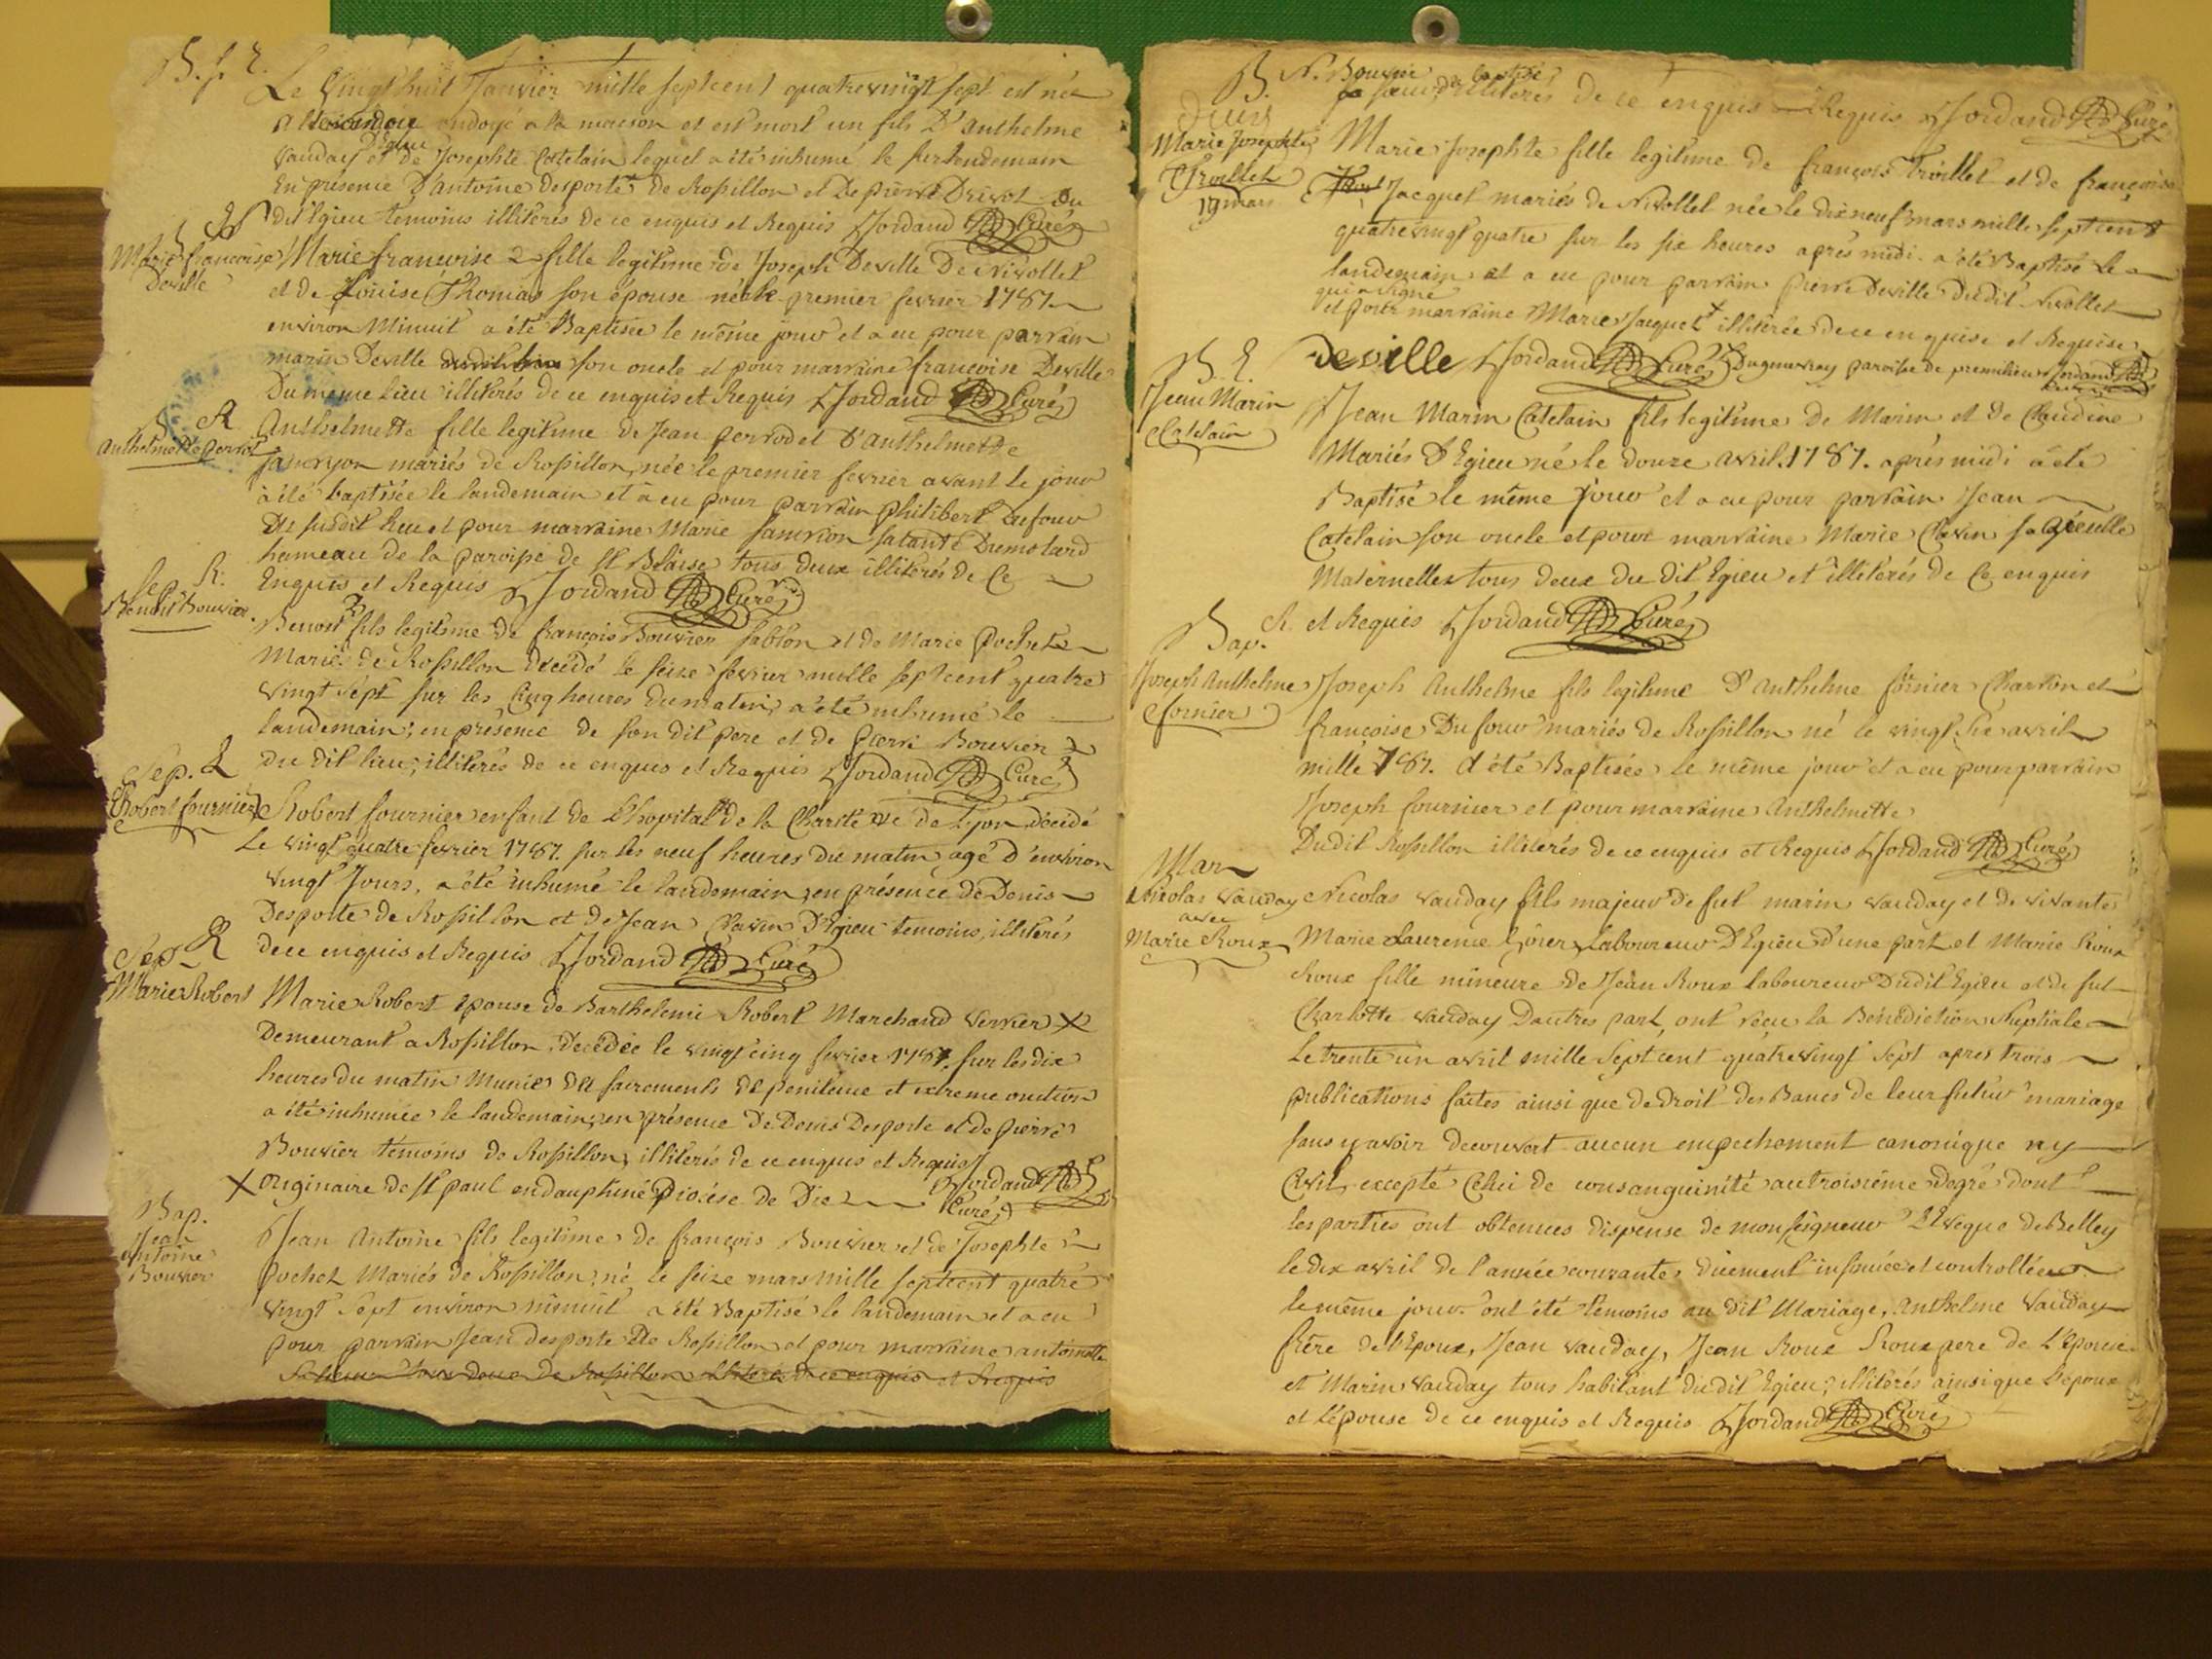 B. S. E.
Le Vingt huit Janvier mille septcent quatrevingt sept est né
ondoyé a la maison et est mort un fils D'anthelme
Vauday d'Egieu et de Josephte Catelain lequel a été inhumé le surlendemain
En présence D'antoine desporte de Rossillon et De pierre Drivot Du
dit Egieu témoins illiterés de ce enquis et Requis Jordand Curé
B. N.
Marie françoise Deville
Marie françoise 2 fille legitime de Joseph Deville De Nivollet
et de Louise Thomas son épouse née le premier fevrier 1787.
environ Minuit a été Baptisée le même jour et a eu pour parrain
marin Deville son oncle et pour marraine françoise Deville
Du meme Lieu illiterés de ce enquis et Requis Jordand Curé
B. R.
Anthelmette perrod
Anthelmette fille legitime de Jean perrod et D'Anthelmette
mariés de Rossillon, née le premier fevrier avant le jour
à été baptisée le landemain et a eu pour parrain philibert Dufour
Du susdit lieu et pour marraine Marie sa tante
hameau de la paroisse de St Blaise tous deux illiterés de Ce
Enquis et Requis Jordand Curé
Sep. R.
Benoit Bouvier.
Benoit fils legitime de françois Bouvier sablon et de Marie Pochet
Mariés de Rossillon décédé le seize fevrier mille septcent quatre
vingt sept sur les Cinq heures du matin a été inhumé le
landemain; en présence de son dit pere et de pierre Bouvier
Du dit lieu; illiterés de ce enquis et Requis Jordand Curé
Sep. R
Robert fournier
Robert fournier enfant de L'hopital de la Charité de Lyon décédé
Le vingt quatre fevrier 1787. sur les neuf heures du matin agé d'environ
vingt Jours, a été inhumé le landemain, en présence de Denis
Desporte de Rossillon et de Jean Chavin D'Egieu temoins, illiterés
de ce enquis et Requis Jordand Curé
Sep. R
Marie Robert
Marie Robert epouse de Barthelemi Robert Marchand Verrier X
Demeurant a Rossillon, décédée le vingt cinq fevrier 1787. sur les dix
heures du matin Munie des sacrements de penitence et extreme onction
a été inhumée le landemain; en présence De Denis Desporte et de pierre
Bouvier témoins de Rossillon, illiterés de ce enquis et Requis
X originaire de St paul en dauphiné Diocése de Die Jordand Curé
Bap.
Jean Antoine Bouvier
Jean Antoine fils legitime de françois Bouvier et de Josephte
Pochet Mariés de Rossillon; né le seize mars mille septcent quatre
vingt sept environ minuit a été Baptisé le landemain et a eu
pour parrain Jean desporte De Rossillon et pour marraine antoinette
tous deux de Rossillon illiterés de ce enquis et Requis
N. Bouvier
sa soeur illiterés de ce enquis Requis Jordand Curé
B.
Marie Josephte Troillet
19 mars
Marie Josephte fille legitime de françois Troillet et de françoise
Jacquet mariés de Nivollet née le dixneuf mars mille septcent
quatrevingt quatre sur les six heures aprés midi a été Baptisé le
landemain et a eu pour parrain pierre Deville du dit Nivollet
qui a signé
et pour marraine Marie Jacquet + illiterée de ce enquise et Requise
deville Jordand Curé + paroisse de premilieu Jordand
B. E.
Jean Marin Catelain
Jean Marin Catelain fils legitime de Marin et de Claudine
Mariés D'Egieu né le douze avril. 1787. aprés midi a été
Baptisé le même jour et a eu pour parrain Jean
Catelain son oncle et pour marraine Marie Chavin sa
Maternelle tous deux du dit Egieu et illiterés de Ce enquis
et Requis Jordand Curé
Bap. R.
Joseph Anthelme fornier
Joseph Anthelme fils legitime D'Anthelme fornier Charron et
françoise Dufour mariés de Rossillon né le vingt six avril
mille 787. a été Baptisée le même jour et a eu pour parrain
Joseph fournier et pour marraine Anthelmette
Dudit Rossillon illiterés de ce enquis et Requis Jordand Curé
Mar
Nicolas Vauday avec Marie Roux
Nicolas Vauday fils majeur de fut marin Vauday et de vivante
Marie Laurence laboureur D'Egieu d'une part et Marie Roux
Roux fille mineure de Jean Roux laboureur Dudit Egieu et de fut
Charlotte Vauday Dautres part, ont recu la Bénédiction Nuptiale
Le trente un avril mille sept cent quatrevingt sept apres trois
publications faites ainsi que de droit des Bancs de leur futur mariage
sans y avoir decouvert aucun empechement canonique ny
Civil, excepté Celui de consanguinité au troisiéme Degré dont
les parties ont obtenues dispense de monseigneur L'Eveque de Belley
le dix avril de l'année courante, duement insinuée et controllée
le même jour. ont été témoins au dit Mariage, Anthelme Vauday
frère de l'Epoux, Jean Vauday, Jean Roux Roux pere de L'épouse
et Marin Vauday tous habitant dudit Egieu; illiterés ainsi que L'epoux
et L'épouse de ce enquis et Requis Jordand Curé